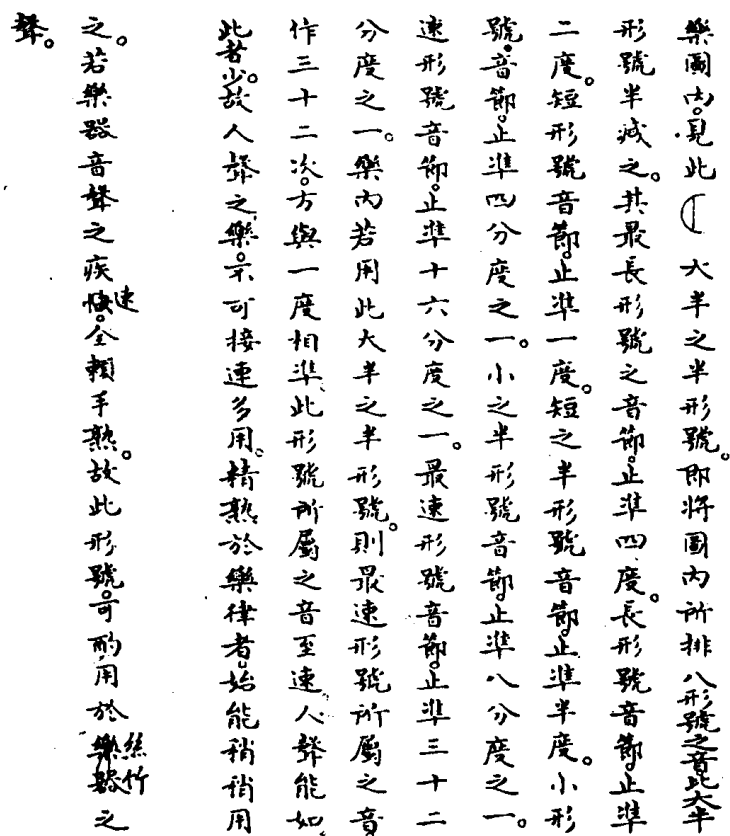 樂圖內。見此 大半之半形號。卽將圖內所排八形號之音。比大半
形號半減之。其最長形號之音節。止準四度。長形號音節。止準
二度。短形號音節。止準一度。短之半形號音節。止準半度。小形
號。音節。止準四分度之一。小之半形號音節。止準八分度之一。
速形號音節。止準十六分度之一。最速形號音節。止準三十二
分度之一。樂內若用此大半之半形號。則最速形號所屬之音
作三十二次。方與一度相準。此形號所屬之音至速。人聲能如
此者少。故人聲之樂。不可接連多用。精熟於樂律者。始能稍稍用
之。若樂器音聲之疾速。全賴手熟。故此形號。可酌用於絲竹之
聲。